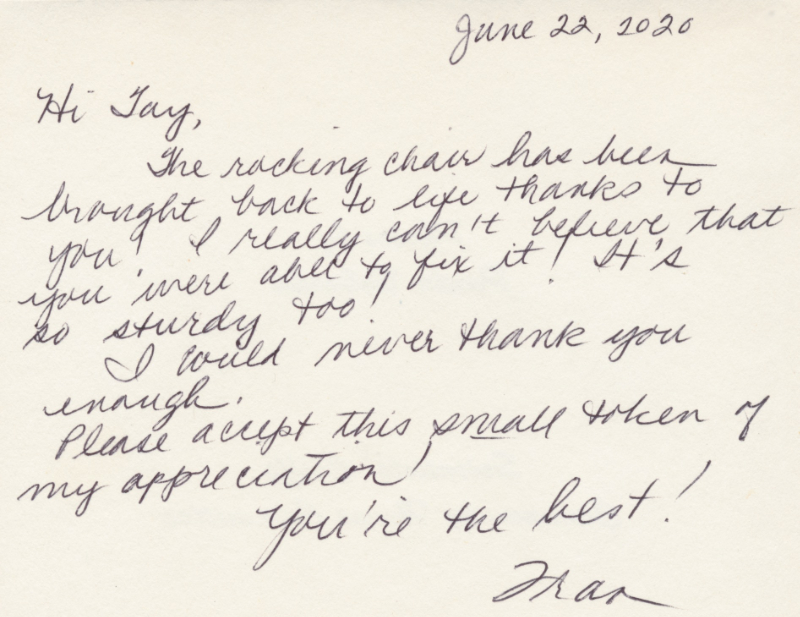 June 22, 2020
Hi Tay,
The rocking chair has been
brought back to life thanks to
you! I really can't believe that
you were able to fix it! It's
so sturdy too!
I could never thank you
enough.
Please accept this small token of
my appreciation!
You're the best!
Fran